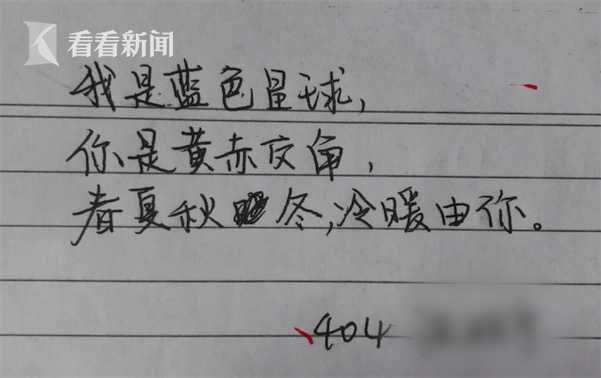 看看新闻
我是蓝色星球,
你是黄赤交角,
春夏秋冬,冷暖由你。
404